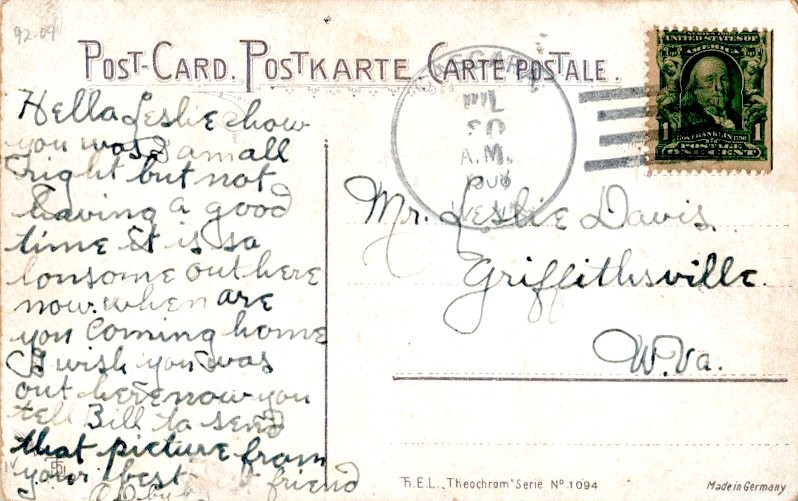 92-09
POST-CARD. POSTKARTE. CARTE POSTALE.
UNITED STATES OF
AMERICA
1 FRANKLIN 1
POSTAGE
ONE CENT
20
A.M.
W.VA.
Hella Leslie how
you was I am all
right but not
having a good
time it is so
lonsome out here
now. when are
you coming home
I wish you was
out here now you
tell Bill to send
that picture from
your best friend
Mr. Leslie Davis.
Griffithsville.
W.Va.
T.E.L. „Theochrom" Serie No. 1094
Made in Germany